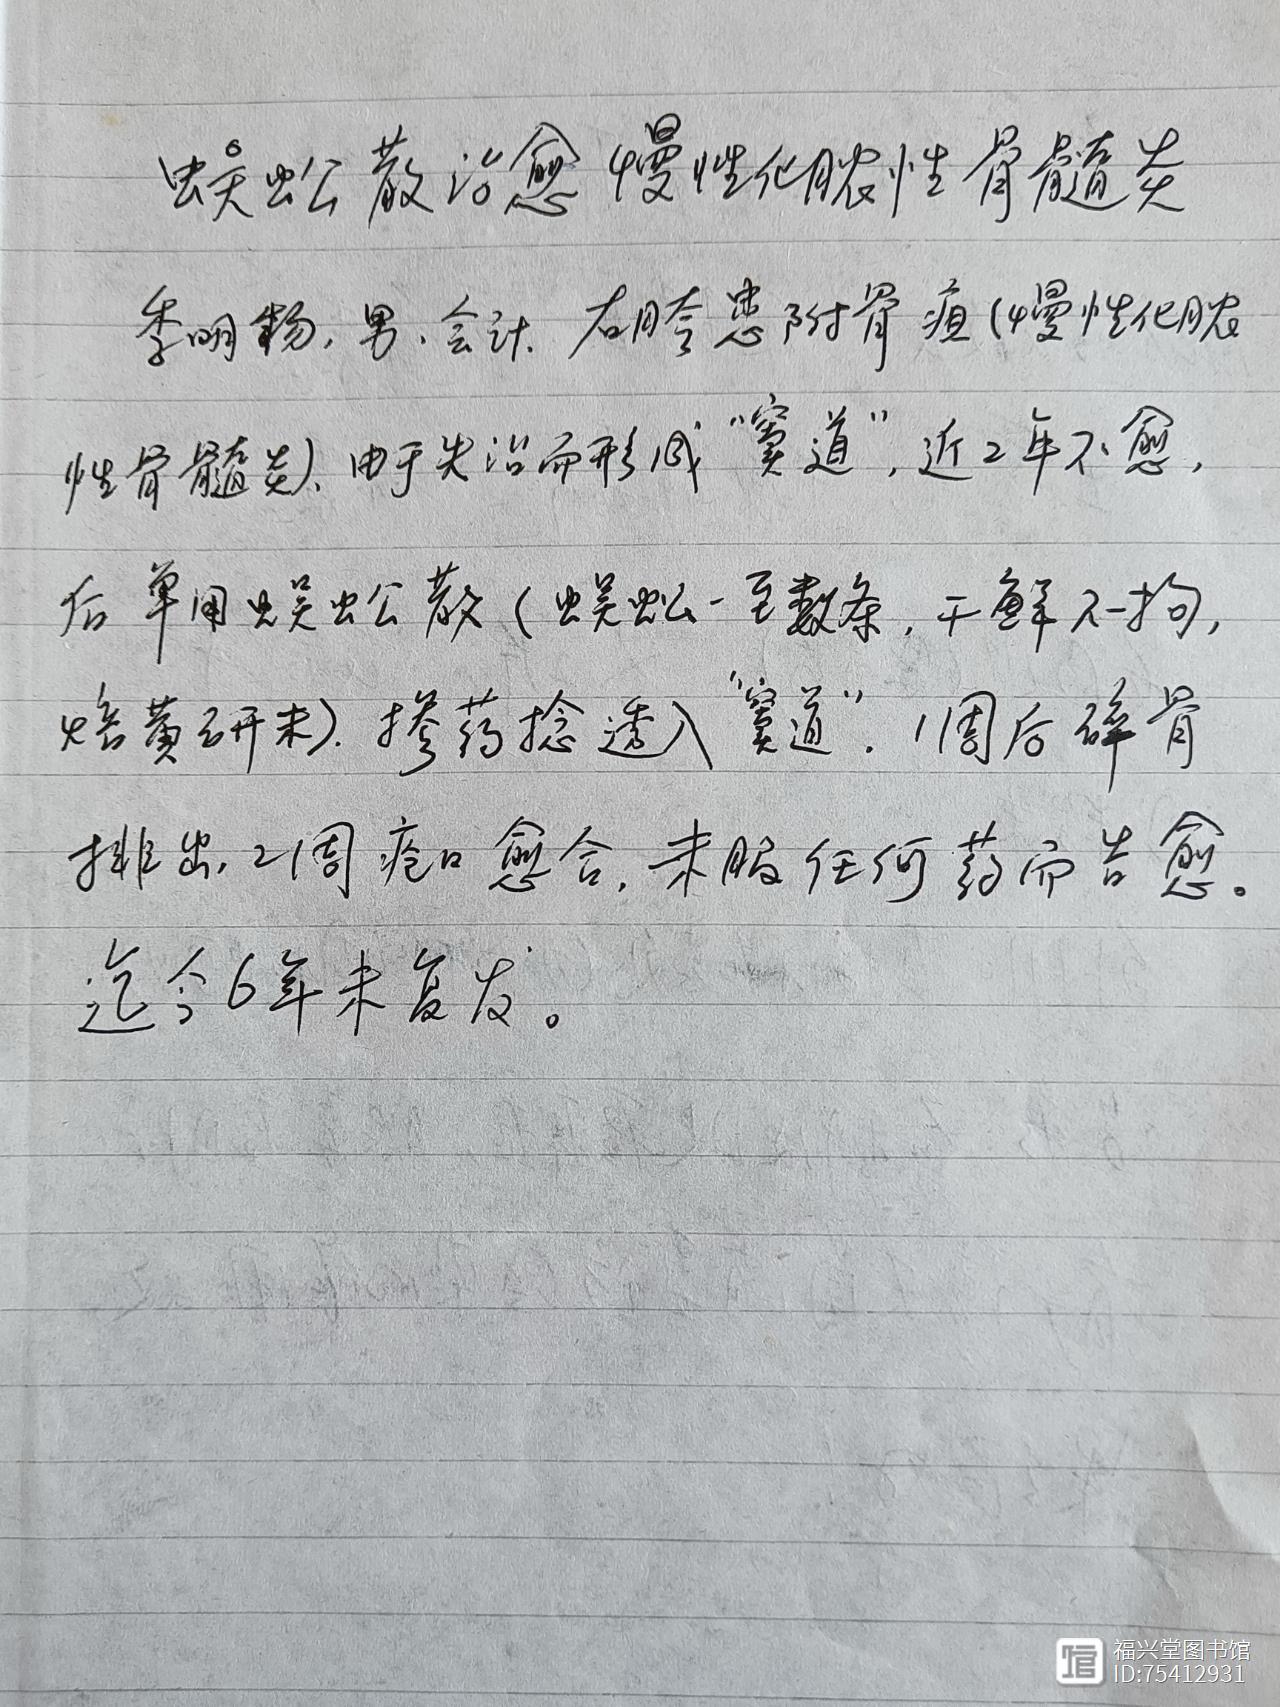 蜈蚣散治愈慢性化脓性骨髓炎
李明杨,男,会计,右胯患附骨疽(慢性化脓
性骨髓炎),由于失治而形成“窦道”,近2年不愈,
后单用蜈蚣散(蜈蚣一至数条,干鲜不拘,
焙黄研末),掺药捻透入“窦道”,1周后碎骨
排出,2周疮口愈合,未服任何药而告愈。
迄今6年未复发。
福兴堂图书馆
ID:75412931